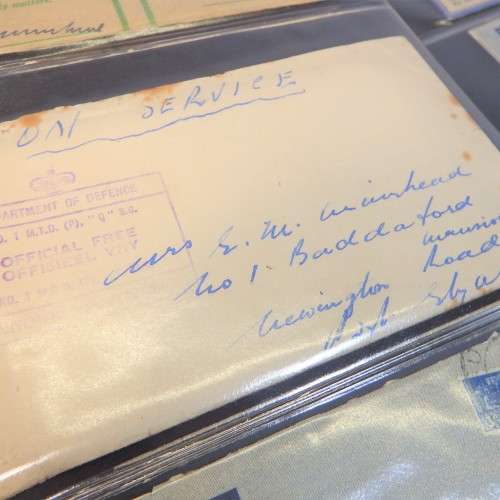 matters.
ON SERVICE
DEPARTMENT OF DEFENCE
NO. 1 M.T.D. (P), "Q" S.C.
OFFICIAL FREE
OFFICIEEL VRY
NO. 1
Mrs E. M. Muirhead
No 1. Baddaford
Newington Road